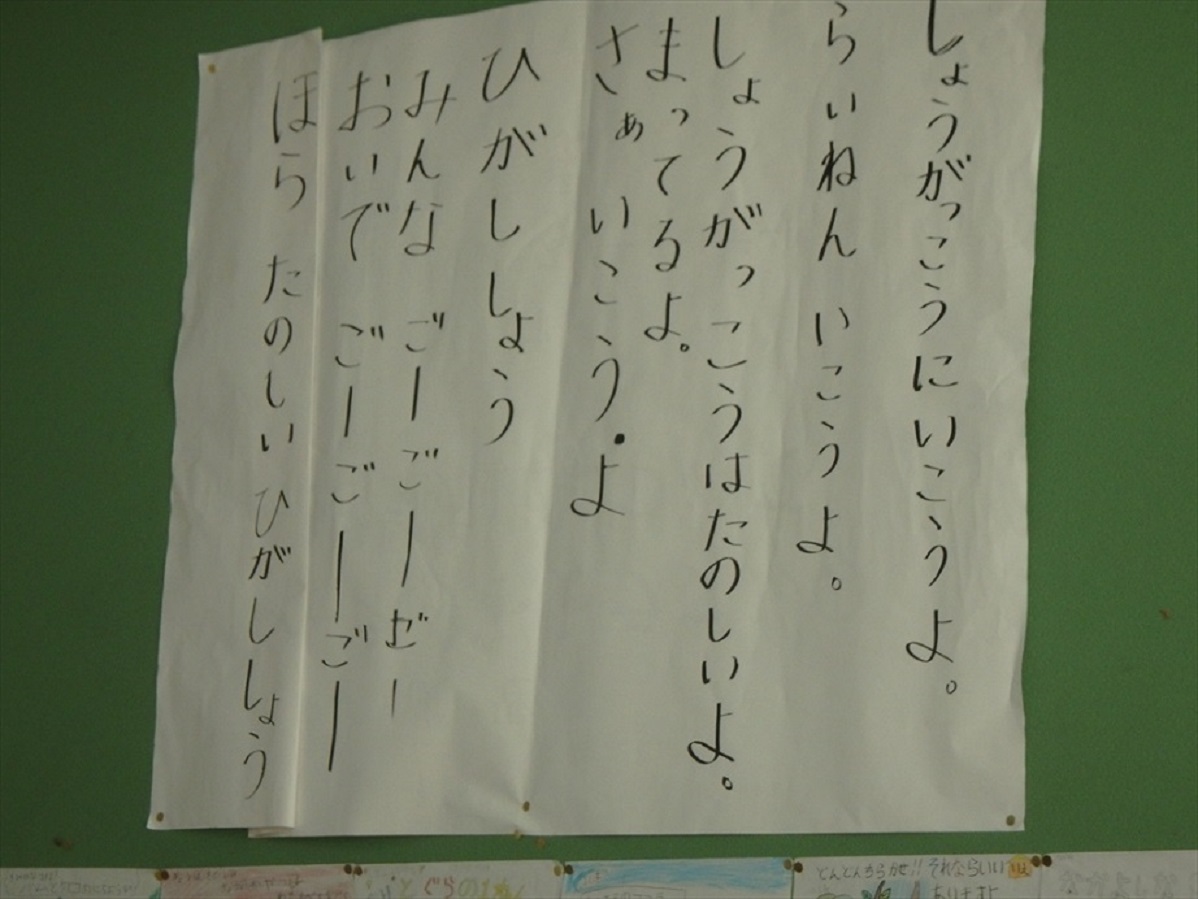 しょうがっこうにいこうよ。
らいねん いこうよ。
しょうがっこうはたのしいよ。
まってるよ。
さぁ いこう.よ
ひがししょう
みんな ごーごーぜー
おいで ごーごーごー
ほら たのしい ひがししょう
どんとんちらかせ!! それならいい
ぐらの